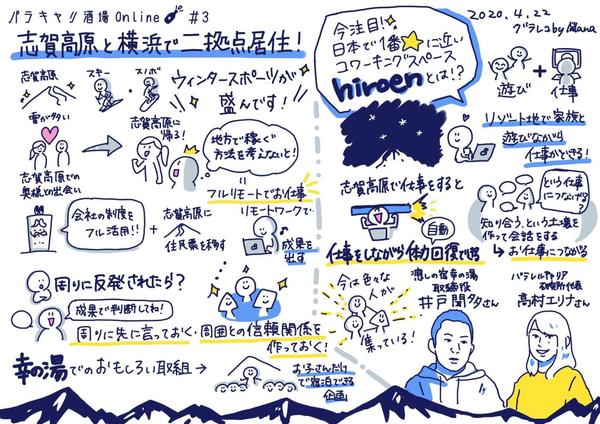 パラキャリ酒場 Online #3
志賀高原と横浜で二拠点居住！
志賀高原
スキー
スノボ
ウィンタースポーツが
盛んです！
雪が多い
志賀高原での
奥様との出会い
志賀高原に
帰る！
地方で稼ぐ
方法を考えないと！
フルリモートでお仕事
会社の制度を
フル活用!!
+
志賀高原に
住民票を移す
リモートワークで
成果を
出す
周りに反発されたら？
成果で判断してね！
周りに先に言っておく・周囲との信頼関係を
作っておく！
幸の湯でのおもしろい取組→
お子さんだけ
で宿泊できる
企画
2020.4.22
グラレコ by
今注目！
日本で1番★に近い
コワーキングスペース
hiroenとは!?
遊び
+
仕事
リゾート地で家族と
遊びながら
仕事ができる！
志賀高原で仕事をすると
自動
仕事をしながら体力回復できる
という仕事
につながる？
知り合う、という土壌を
作って会話をする
→お仕事につながる
今は色々な
人が
集っている！
癒しの宿幸の湯
取締役
井戸聞多さん
パラレルキャリア
研究所代表
高村エリナさん